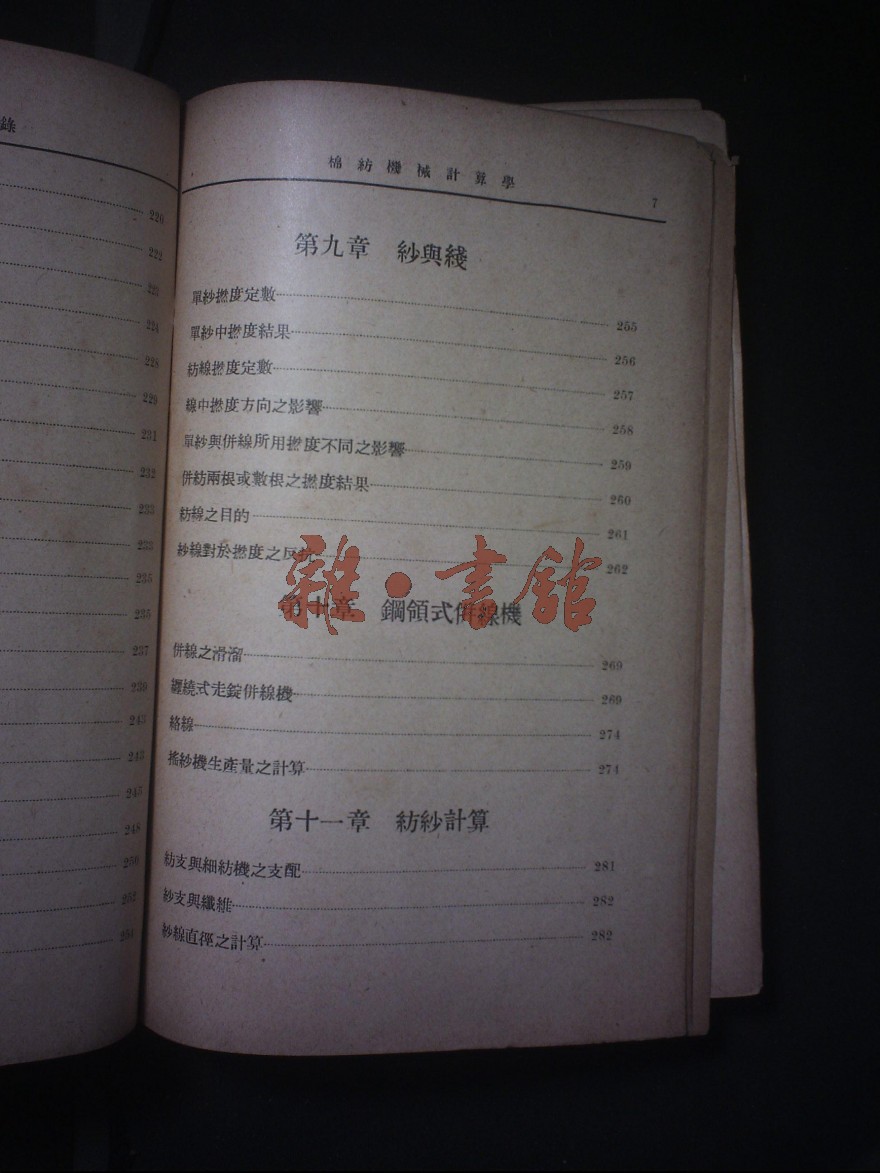 錄
220
222
223
224
228
229
231
232
233
233
235
235
237
239
243
243
245
248
250
252
254
棉紡機械計算學 7
第九章 紗與綫
單紗撚度定數 255
單紗中撚度結果 256
紡線撚度定數 257
線中撚度方向之影響 258
單紗與併線所用撚度不同之影響 259
併紡兩根或數根之撚度結果 260
紡線之目的 261
紗線對於撚度之反抗 262
雜·書館
第十章 鋼領式併線機
併線之滑溜 269
纏繞式走錠併線機 269
絡線 274
搖紗機生產量之計算 274
第十一章 紡紗計算
紡支與細紡機之支配 281
紗支與纖維 282
紗線直徑之計算 282